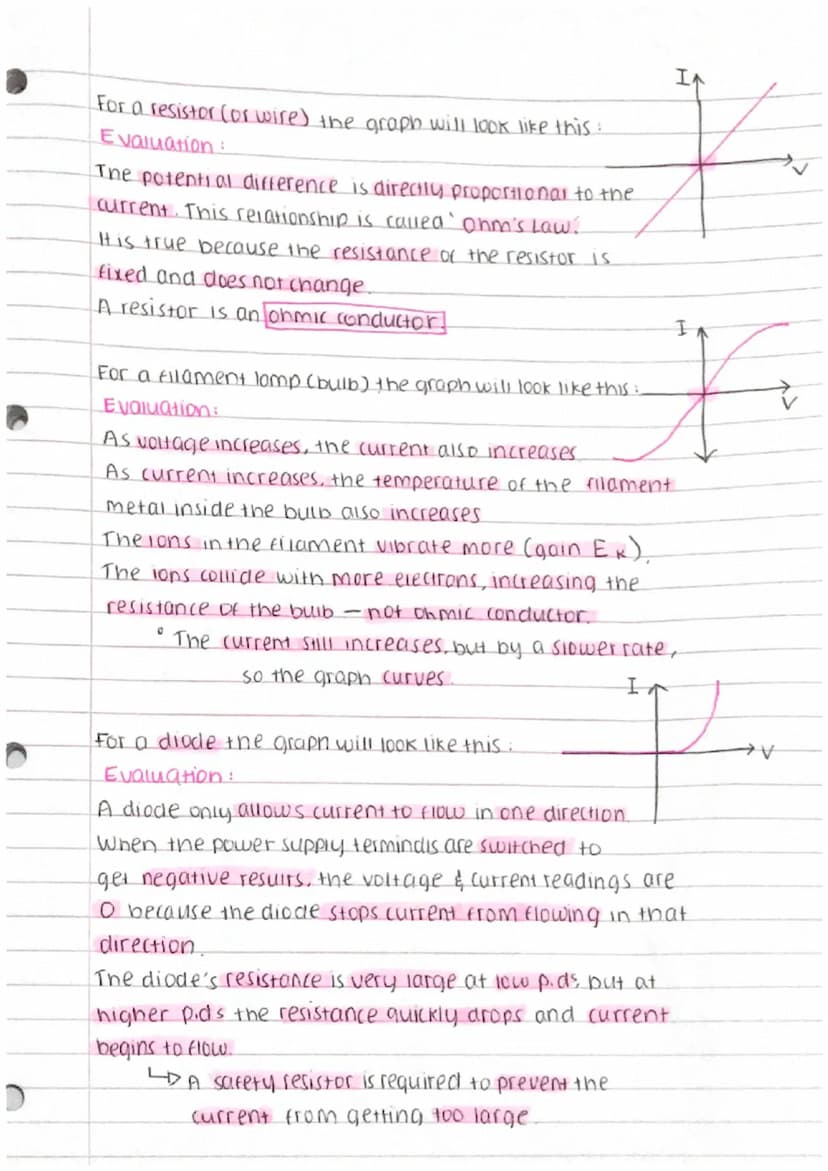 I
For a resistor (or wire) the graph will look like this:
Evaluation:
V
The potential difference is directly proportional to the
current. This relationship is called 'Ohm's Law'.
It is true because the resistance of the resistor is
fixed and does not change.
A resistor is an ohmic conductor.
I
For a filament lamp (bulb) the graph will look like this:
V
Evaluation:
As voltage increases, the current also increases
As current increases, the temperature of the filament
metal inside the bulb also increases
The ions in the filament vibrate more (gain EK).
The ions collide with more electrons, increasing the
resistance of the bulb – not ohmic conductor.
° The current still increases, but by a slower rate,
so the graph curves.
I
For a diode the graph will look like this:
V
Evaluation:
A diode only allows current to flow in one direction.
When the power supply terminals are switched to
get negative results, the voltage & current readings are
0 because the diode stops current from flowing in that
direction.
The diode's resistance is very large at low p.ds, but at
higher p.ds the resistance quickly drops and current
begins to flow.
↳ A safety resistor is required to prevent the
current from getting too large